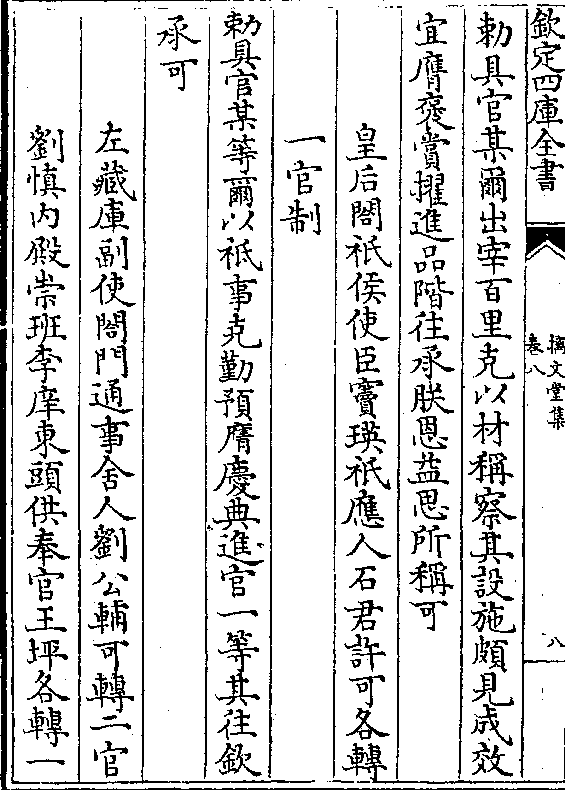 欽定四庫全書
摛文堂集
卷八
八
勅具官某爾出宰百里克以材稱察其設施頗見成效
宜膺褒賞擢進品階往承朕恩益思所稱可
皇后閤祇候使臣竇瑛祇應人石君許可各轉
一官制
勅具官某等爾以祇事克勤預膺慶典進官一等其往欽
承可
左藏庫副使閤門通事舍人劉公輔可轉二官
劉慎内殿崇班李庠東頭供奉官王坪各轉一